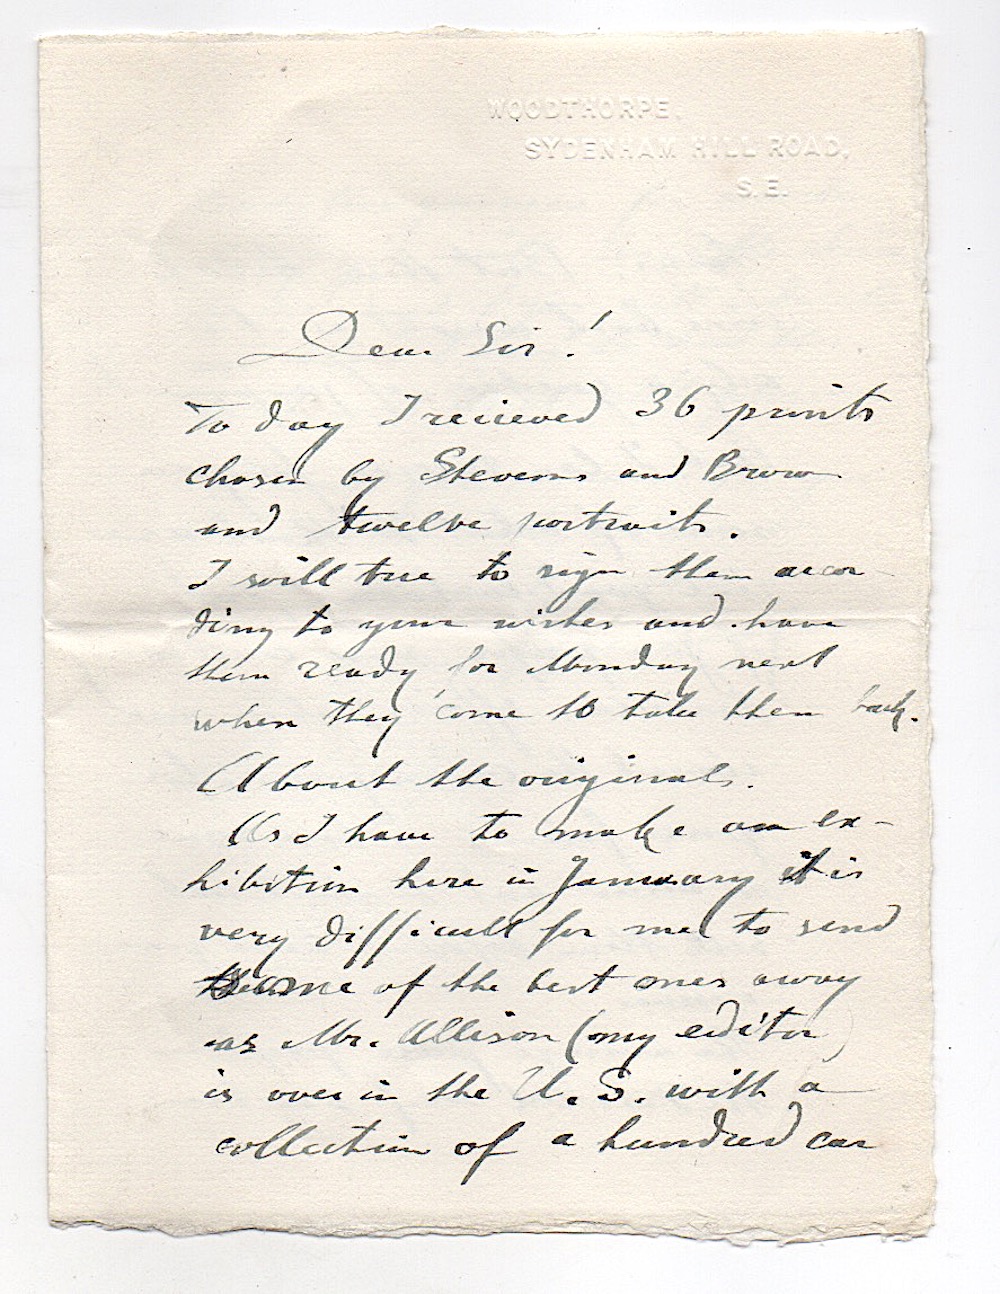 WOODTHORPE,
SYDENHAM HILL ROAD,
S.E.
Dear Sir!
To day I recieved 36 prints
chosen by Stevens and Brown
and twelve portraits.
I will true to sign them accor-
ding to your wishes and have
them ready for Monday next
when they come to take them back.
About the originals.
As I have to make an ex-
hibition here in January it is
very difficult for me to send
some of the best ones away
as Mr. Allison (my editor)
is over in the U.S. with a
collection of a hundred car